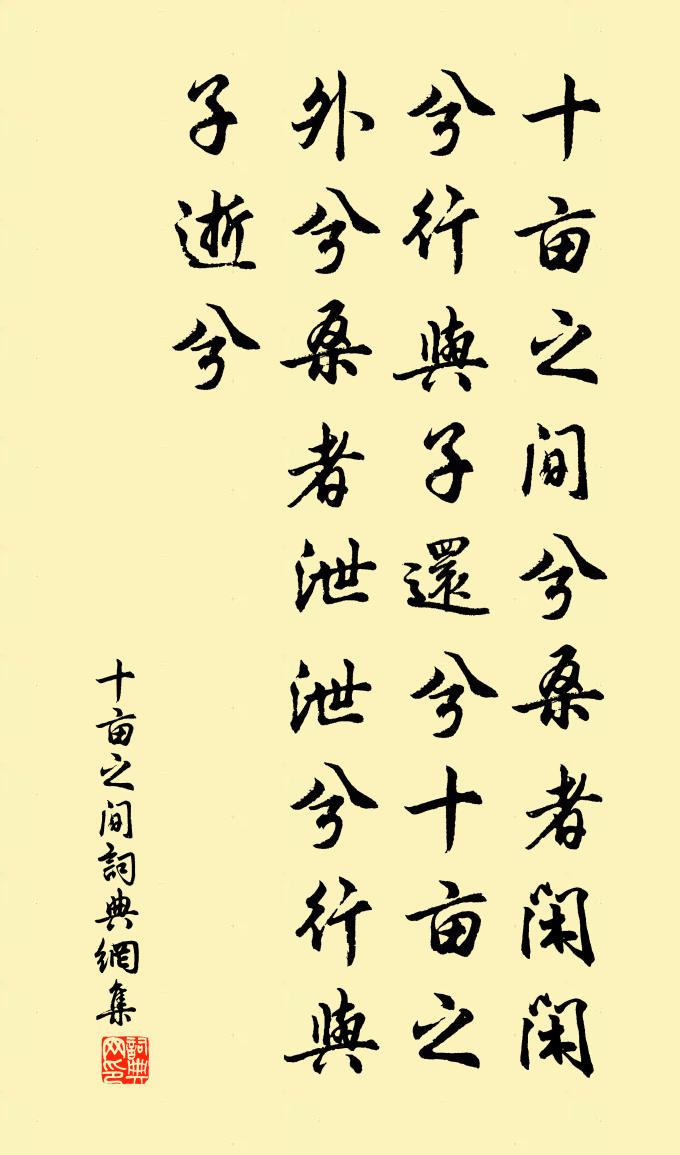 十亩之间兮桑者闲闲
兮行與子還兮十亩之
外兮桑者泄泄兮行與
子逝兮
十亩之间詞典網集
詞典网印